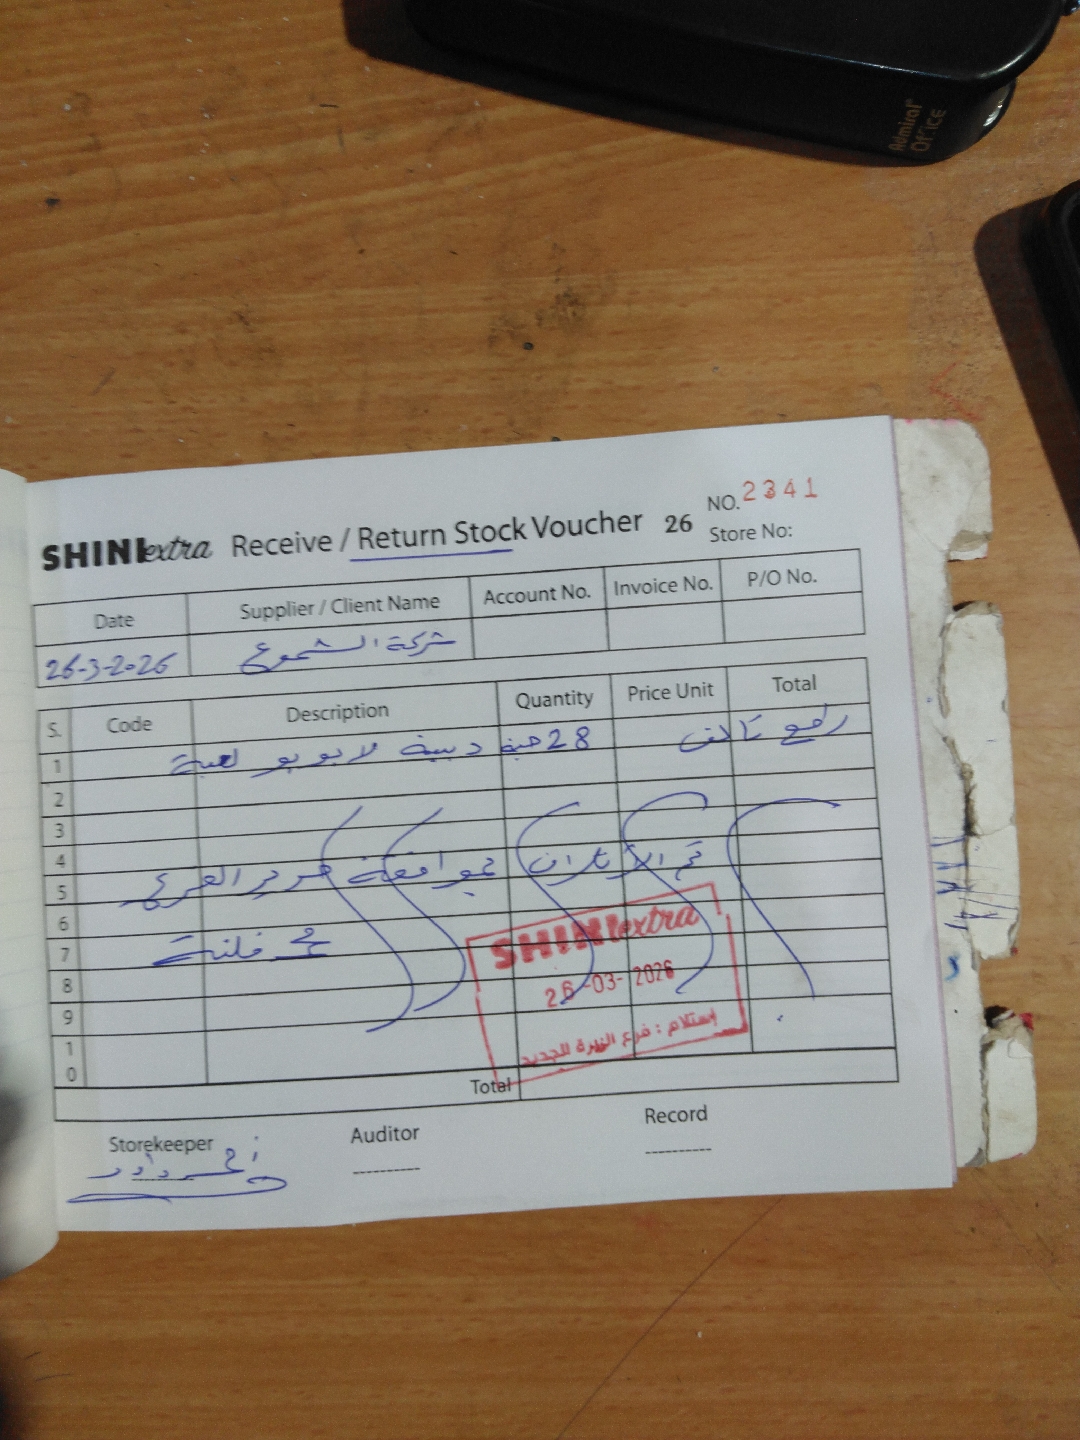 Admiral
Office
SHINIextra Receive / Return Stock Voucher 26
NO. 2341
Store No:
Date Supplier / Client Name Account No. Invoice No. P/O No.
26-3-2026 شركة الشموع
S. Code Description Quantity Price Unit Total
1 28 حبة دبية لابوبو لعبة
2
3
4
5 تم الاتلاف بموافقة مدير الفرع
6
7
8
9
10
SHINIextra
26-03-2026
إستلام : فرع
Total
Storekeeper Auditor Record